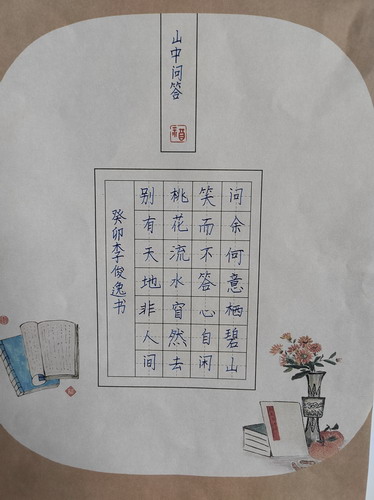 山中问答
问余何意栖碧山
笑而不答心自闲
桃花流水窅然去
别有天地非人间
癸卯李俊逸书